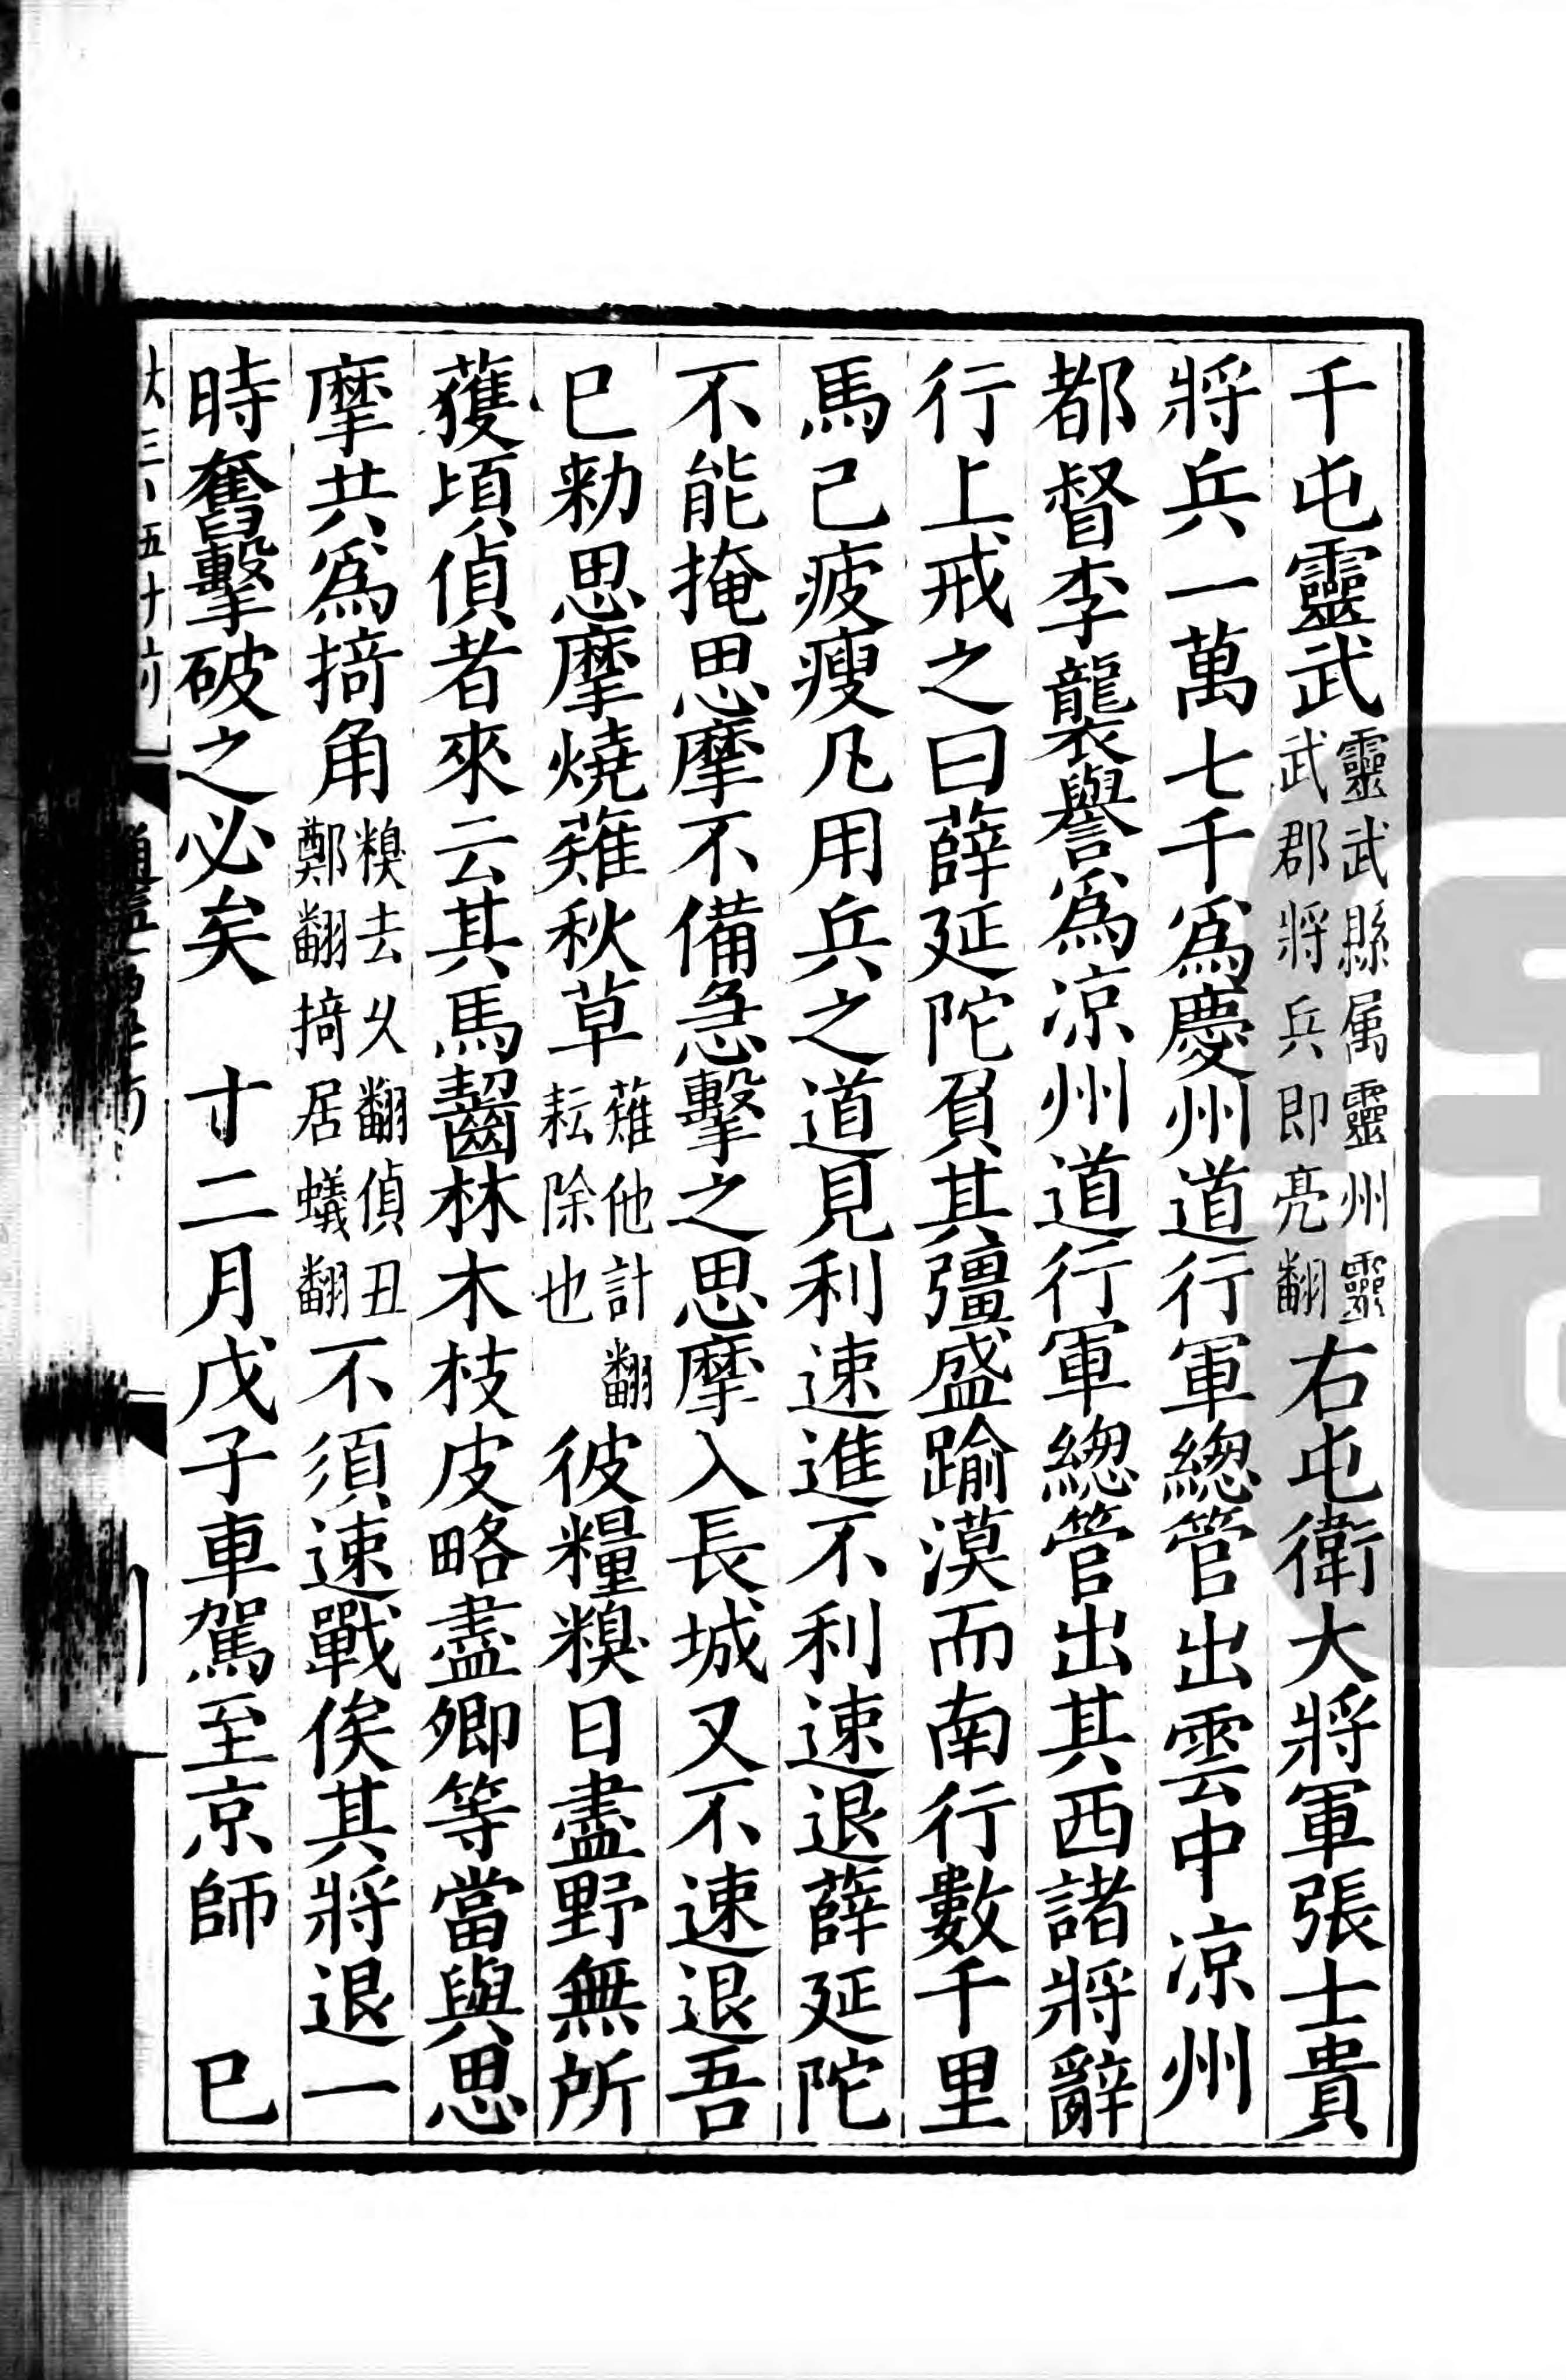 千屯靈武靈武縣属靈州靈武郡將兵即亮翻右屯衛大將軍張士貴
將兵一萬七千爲慶州道行軍緫管出雲中凉州
都督李襲譽爲凉州道行軍緫管出其西諸將辭
行上戒之曰薛延陀負其彊盛踰漠而南行數千里
馬已疲瘦凡用兵之道見利速進不利速退薛延陀
不能掩思摩不備急擊之思摩入長城又不速退吾
已勑思摩燒薙秋草薙他計翻耘除也彼糧糗日盡野無所
獲頃偵者來云其馬齧林木枝皮略盡卿等當與思
摩共爲掎角糗去乆翻偵丑鄭翻掎居蟻翻不須速戰俟其將退一
時奮擊破之必矣 十二月戊子車駕至京師 巳